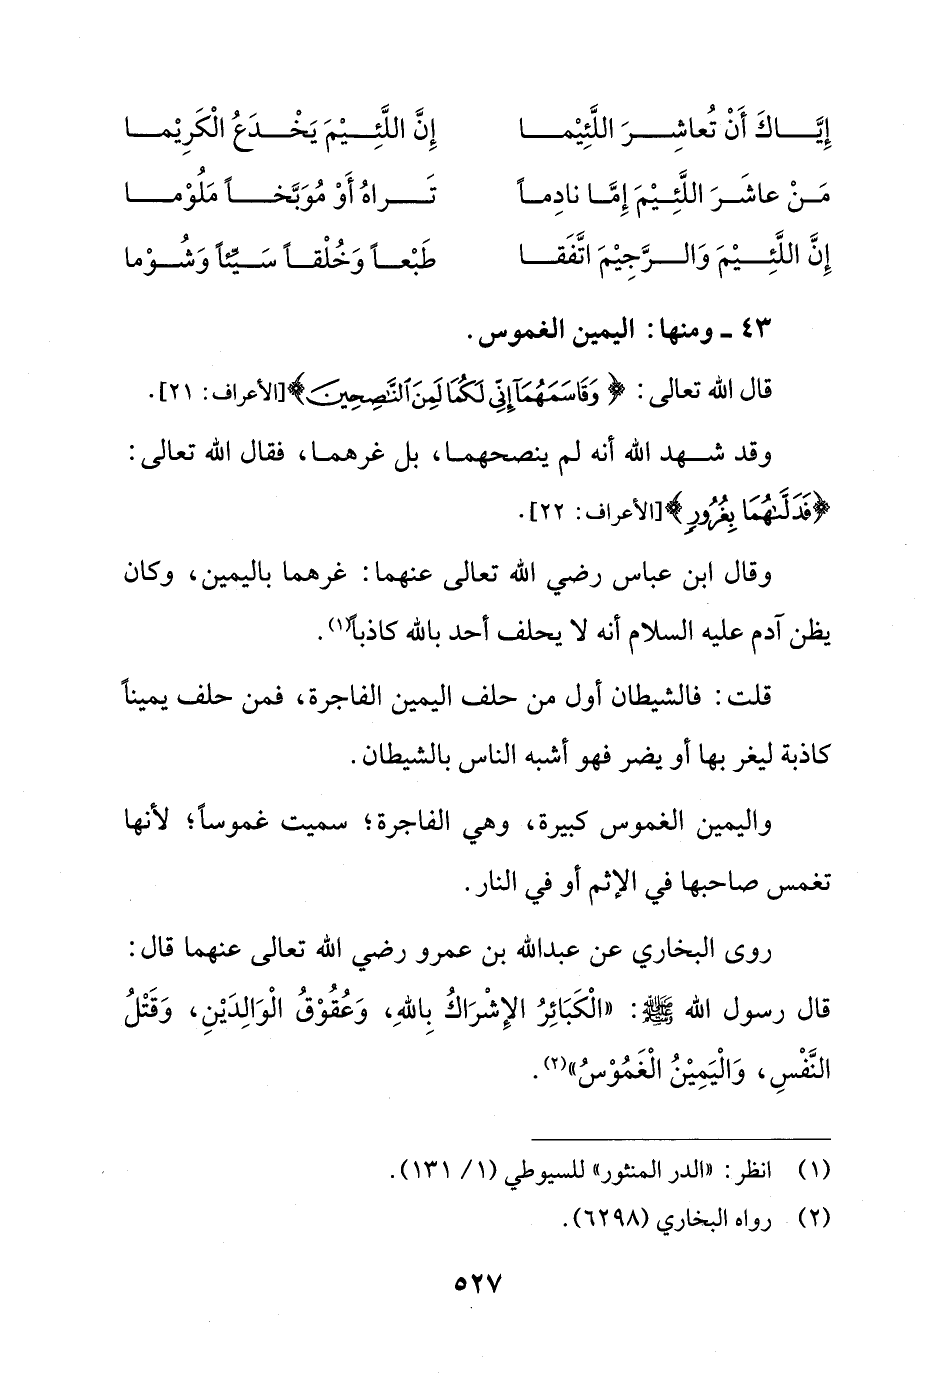 إِيَّـــاكَ أَنْ تُعاشِـــرَ اللَّئِيْمـــا إِنَّ اللَّئِـــيْمَ يَخْـــدَعُ الْكَرِيْمـــا
مَـنْ عاشَـرَ اللَّئِـيْمَ إِمَّـا نادِمـاً تَـــراهُ أَوْ مُوَبَّخـــاً مَلُوْمـــا
إِنَّ اللَّئِـــيْمَ وَالـــرَّجِيْمَ اتَّفَقـــا طَبْعـــاً وَخُلْقـــاً سَـــيِّئاً وَشُـــوْما
٤٣ ـ ومنها: اليمين الغموس.
قال الله تعالى: ﴿وَقَاسَمَهُمَآ إِنِّي لَكُمَا لَمِنَ ٱلنَّٰصِحِينَ﴾[الأعراف: ٢١].
وقد شـــهد الله أنه لم ينصحهمـا، بل غرهمـا، فقال الله تعالى:
﴿فَدَلَّىٰهُمَا بِغُرُورٍ﴾[الأعراف: ٢٢].
وقال ابن عباس رضي الله تعالى عنهما: غرهما باليمين، وكان
يظن آدم عليه السلام أنه لا يحلف أحد بالله كاذباً(١).
قلت: فالشيطان أول من حلف اليمين الفاجرة، فمن حلف يميناً
كاذبة ليغر بها أو يضر فهو أشبه الناس بالشيطان.
واليمين الغموس كبيرة، وهي الفاجرة؛ سميت غموساً؛ لأنها
تغمس صاحبها في الإثم أو في النار.
روى البخاري عن عبدالله بن عمرو رضي الله تعالى عنهما قال:
قال رسول الله ﷺ: «الْكَبَائِرُ الإِشْرَاكُ بِاللهِ، وَعُقُوْقُ الْوَالِدَيْنِ، وَقَتْلُ
النَّفْسِ، وَالْيَمِيْنُ الْغَمُوْسُ»(٢).
(١) انظر: «الدر المنثور» للسيوطي (١/ ١٣١).
(٢) رواه البخاري (٦٢٩٨).
٥٢٧